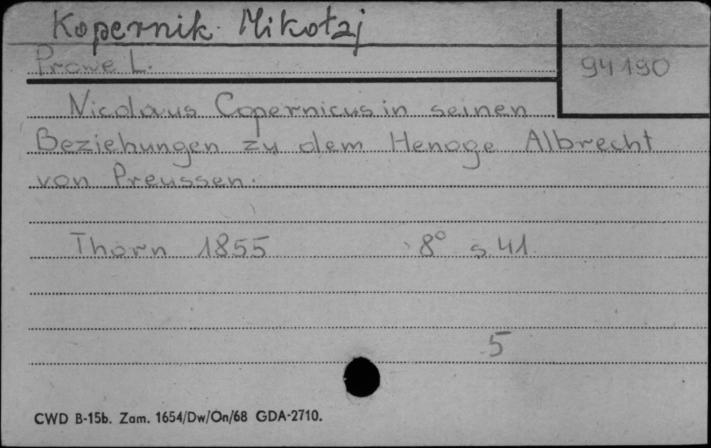 Kopernik Mikołaj
Prowe L.
94190
Nicolaus Copernicus in seinen
Beziehungen zu dem Henoge Albrecht
von Preussen.
Thorn 1855 8° s. 41.
5
CWD B-15b. Zam. 1654/Dw/On/68 GDA-2710.